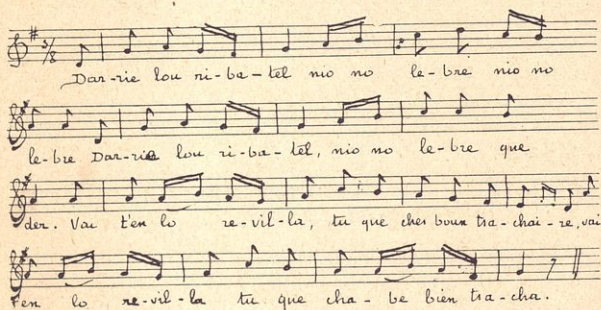 3/8
Dar-rie lou ri-ba-tel nio no le-bre nio no
le-bre Dar-rie lou ri-ba-tel, nio no le-bre que
der. Vai t'en lo re-vil-la, tu que ches boun tra-chai-re, vai
t'en lo re-vil-la tu que cha-be bien tra-cha.